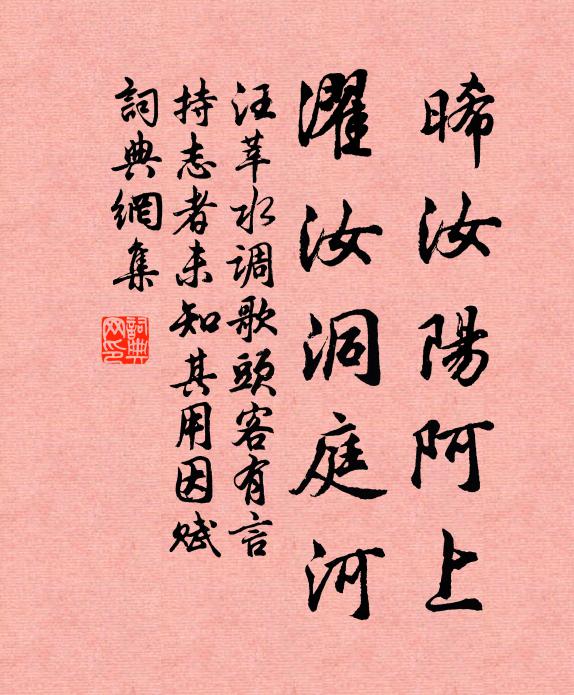 晞汝陽阿上
濯汝洞庭河
汪莘水调歌頭客有言
持志者未知其用因赋
詞典網集
詞典
网印